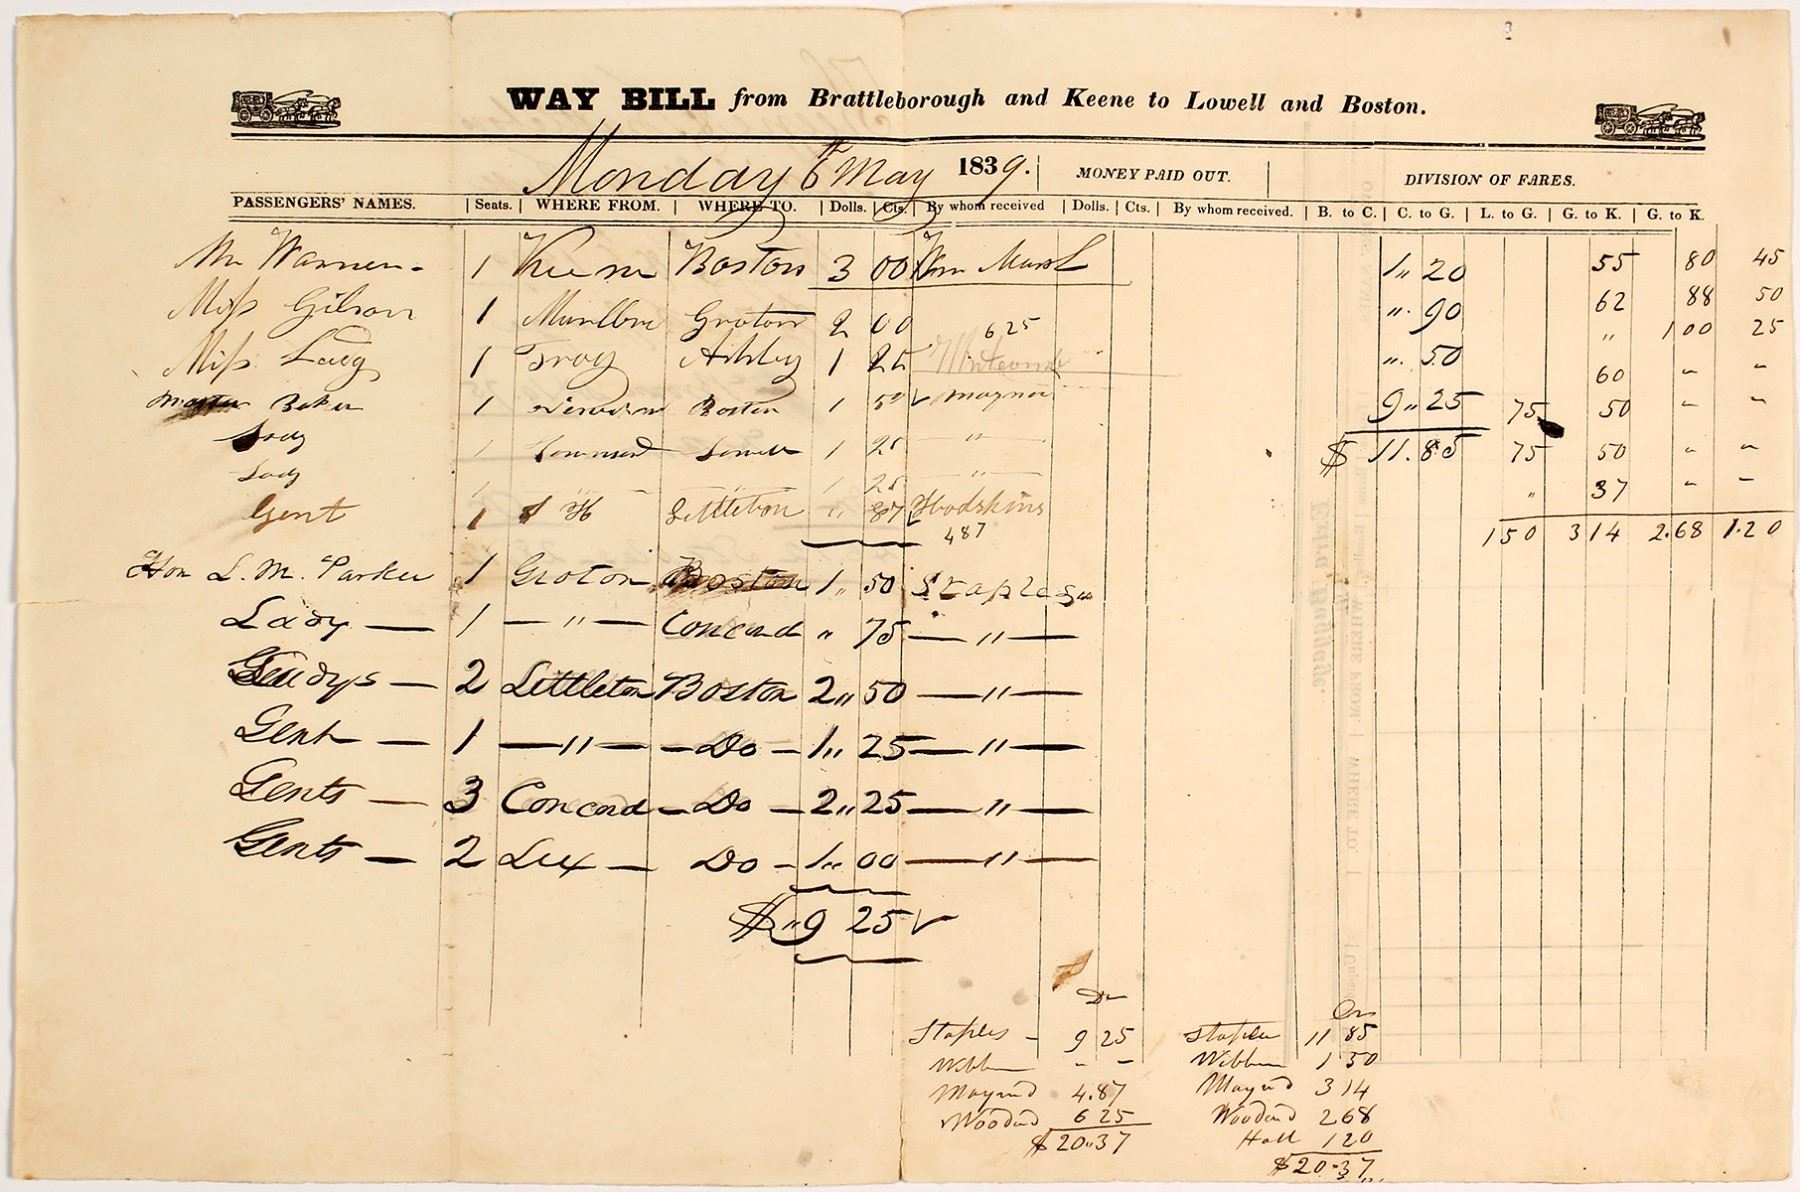 WAY BILL from Brattleborough and Keene to Lowell and Boston.
Monday 6th May 1839. MONEY PAID OUT. DIVISION OF FARES.
PASSENGERS' NAMES. Seats. WHERE FROM. WHERE TO. Dolls. Cts. By whom received Dolls. Cts. By whom received. B. to C. C. to G. L. to G. G. to K. G. to K.
Mr Warren 1 Keene Boston 3 00 Wm 1,, 20 55 80 45
Miss Gilson 1 Marlbro Groton 2 00 ,, 90 62 88 50
625
Miss Lady 1 Troy Ashby 1 25 Whitcomb ,, 50 ,, 100 25
Master Baker 1 Boston 1 50 Maynard 9,, 25 60 " "
Lady 1 Townsend Lowell 1 25 " $ 11.85 75 50 " "
Lady 1 " " 1 25 " 75 50 " "
Gent 1 Littleton ,, 87 Hodskins ,, 37 " "
487 150 314 2.68 1.20
Hon L. M. Parker 1 Groton Boston 1,, 50 Staples
Lady — 1 — " — Concord ,, 75 — " —
Ladys — 2 Littleton Boston 2,, 50 — " —
Gent — 1 — " — — Do — 1,, 25 — " —
Gents — 3 Concord — Do — 2,, 25 — " —
Gents — 2 Lex — Do — 1,, 00 — " —
$ ,, 9 25
Dr Crs
Staples - 9 25 Staples 11 85
Webber - - Webber 1 50
Maynard 4.87 Maynard 3 14
Woodard 6 25 Woodard 2 68
$ 20.37 Hall 1 20
$ 20.37